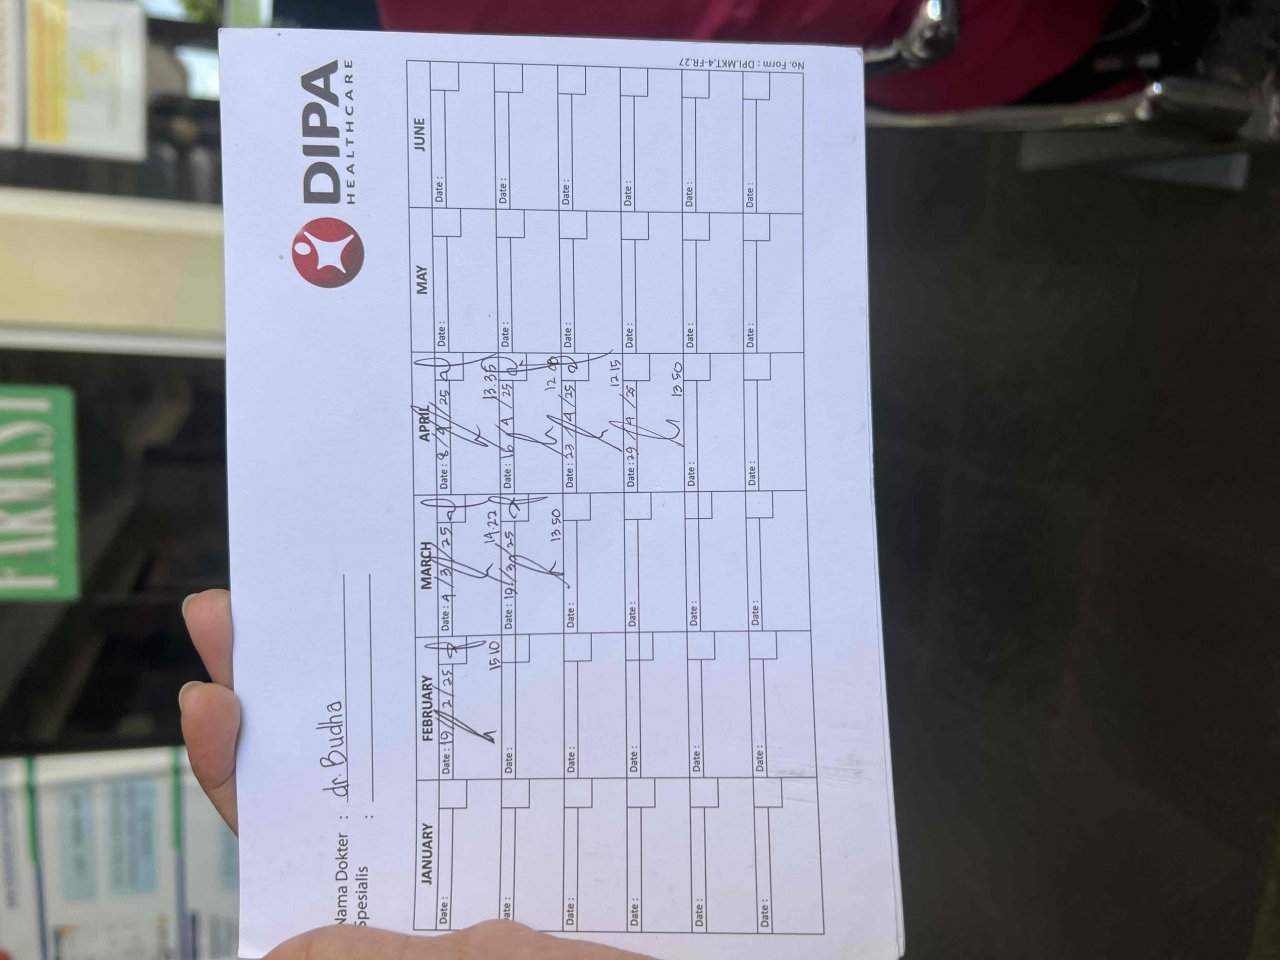 DIPA
HEALTHCARE
Nama Dokter : dr. Budha
Spesialis :
JANUARY FEBRUARY MARCH APRIL MAY JUNE
Date : Date : 19/2/25 Date : 4/3/25 Date : 8/4/25 Date : Date :
15.10 14.22 13.35
Date : Date : Date : 19/3/25 Date : 16/4/25 Date : Date :
13.50 12.00
Date : Date : Date : Date : 23/4/25 Date : Date :
12.15
Date : Date : Date : Date : 29/4/25 Date : Date :
13.50
Date : Date : Date : Date : Date : Date :
Date : Date : Date : Date : Date : Date :
No. Form : DPI.MKT.4-FR.27
FARMASI